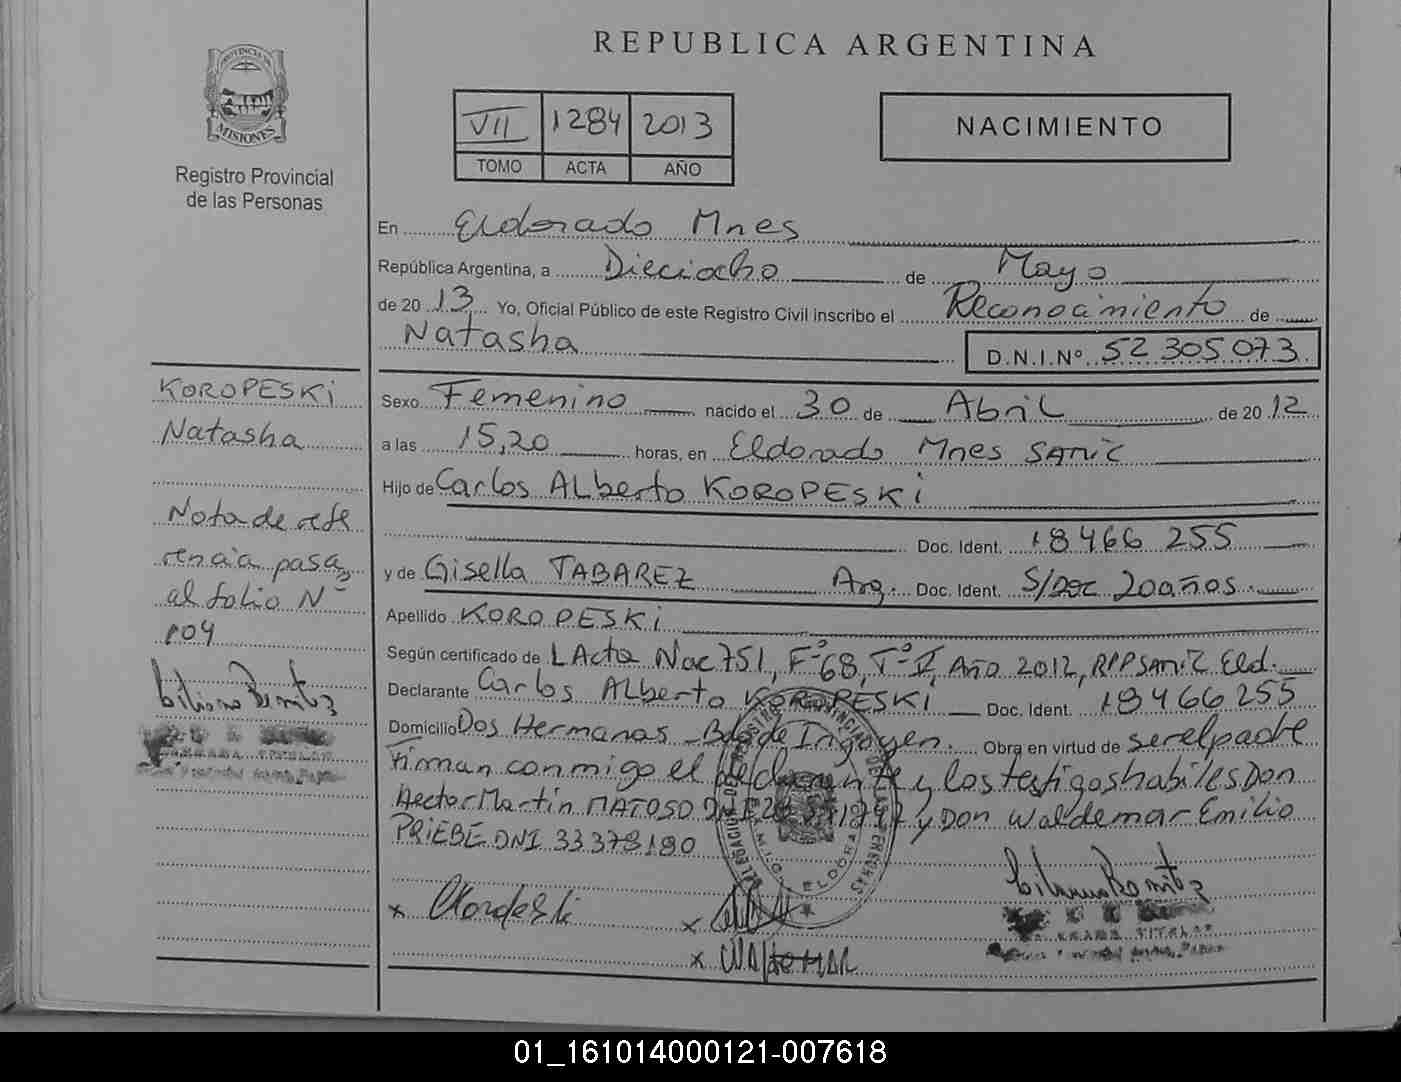 REPUBLICA ARGENTINA
PROVINCIA DE
MISIONES
Registro Provincial
de las Personas
VII 1284 2013
TOMO ACTA AÑO
NACIMIENTO
En Eldorado Mnes
República Argentina, a Dieciocho de Mayo
de 20 13 Yo, Oficial Público de este Registro Civil inscribo el Reconocimiento de
Natasha D.N.I.Nº 52 305 073
KOROPESKi
Natasha
Nota de refe
rencia pasa
al folio Nº
104
Sexo Femenino nacido el 30 de Abril de 20 12
a las 15,20 horas, en Eldorado Mnes SAMiC
Hijo de Carlos ALberto KOROPESKi
Doc. Ident. 18466 255
y de Gisella TABAREZ Arg. Doc. Ident. S/Doc 20años
Apellido KOROPESKi
Según certificado de LActa Nac 751, Fº68, Tº II, Año 2012, RPPSAMiC Eld.
Declarante Carlos ALberto KOROPESKi Doc. Ident. 18466255
Domicilio Dos Hermanas _ Bdo de Irigoyen. Obra en virtud de ser el padre
Firman conmigo el declarante y los testigos habiles Don
Hector Martin MATOSO DNI y Don Waldemar Emilio
PRiEBE DNI 33378180
x x
x WALdEMAR
TITULAR
01_161014000121-007618